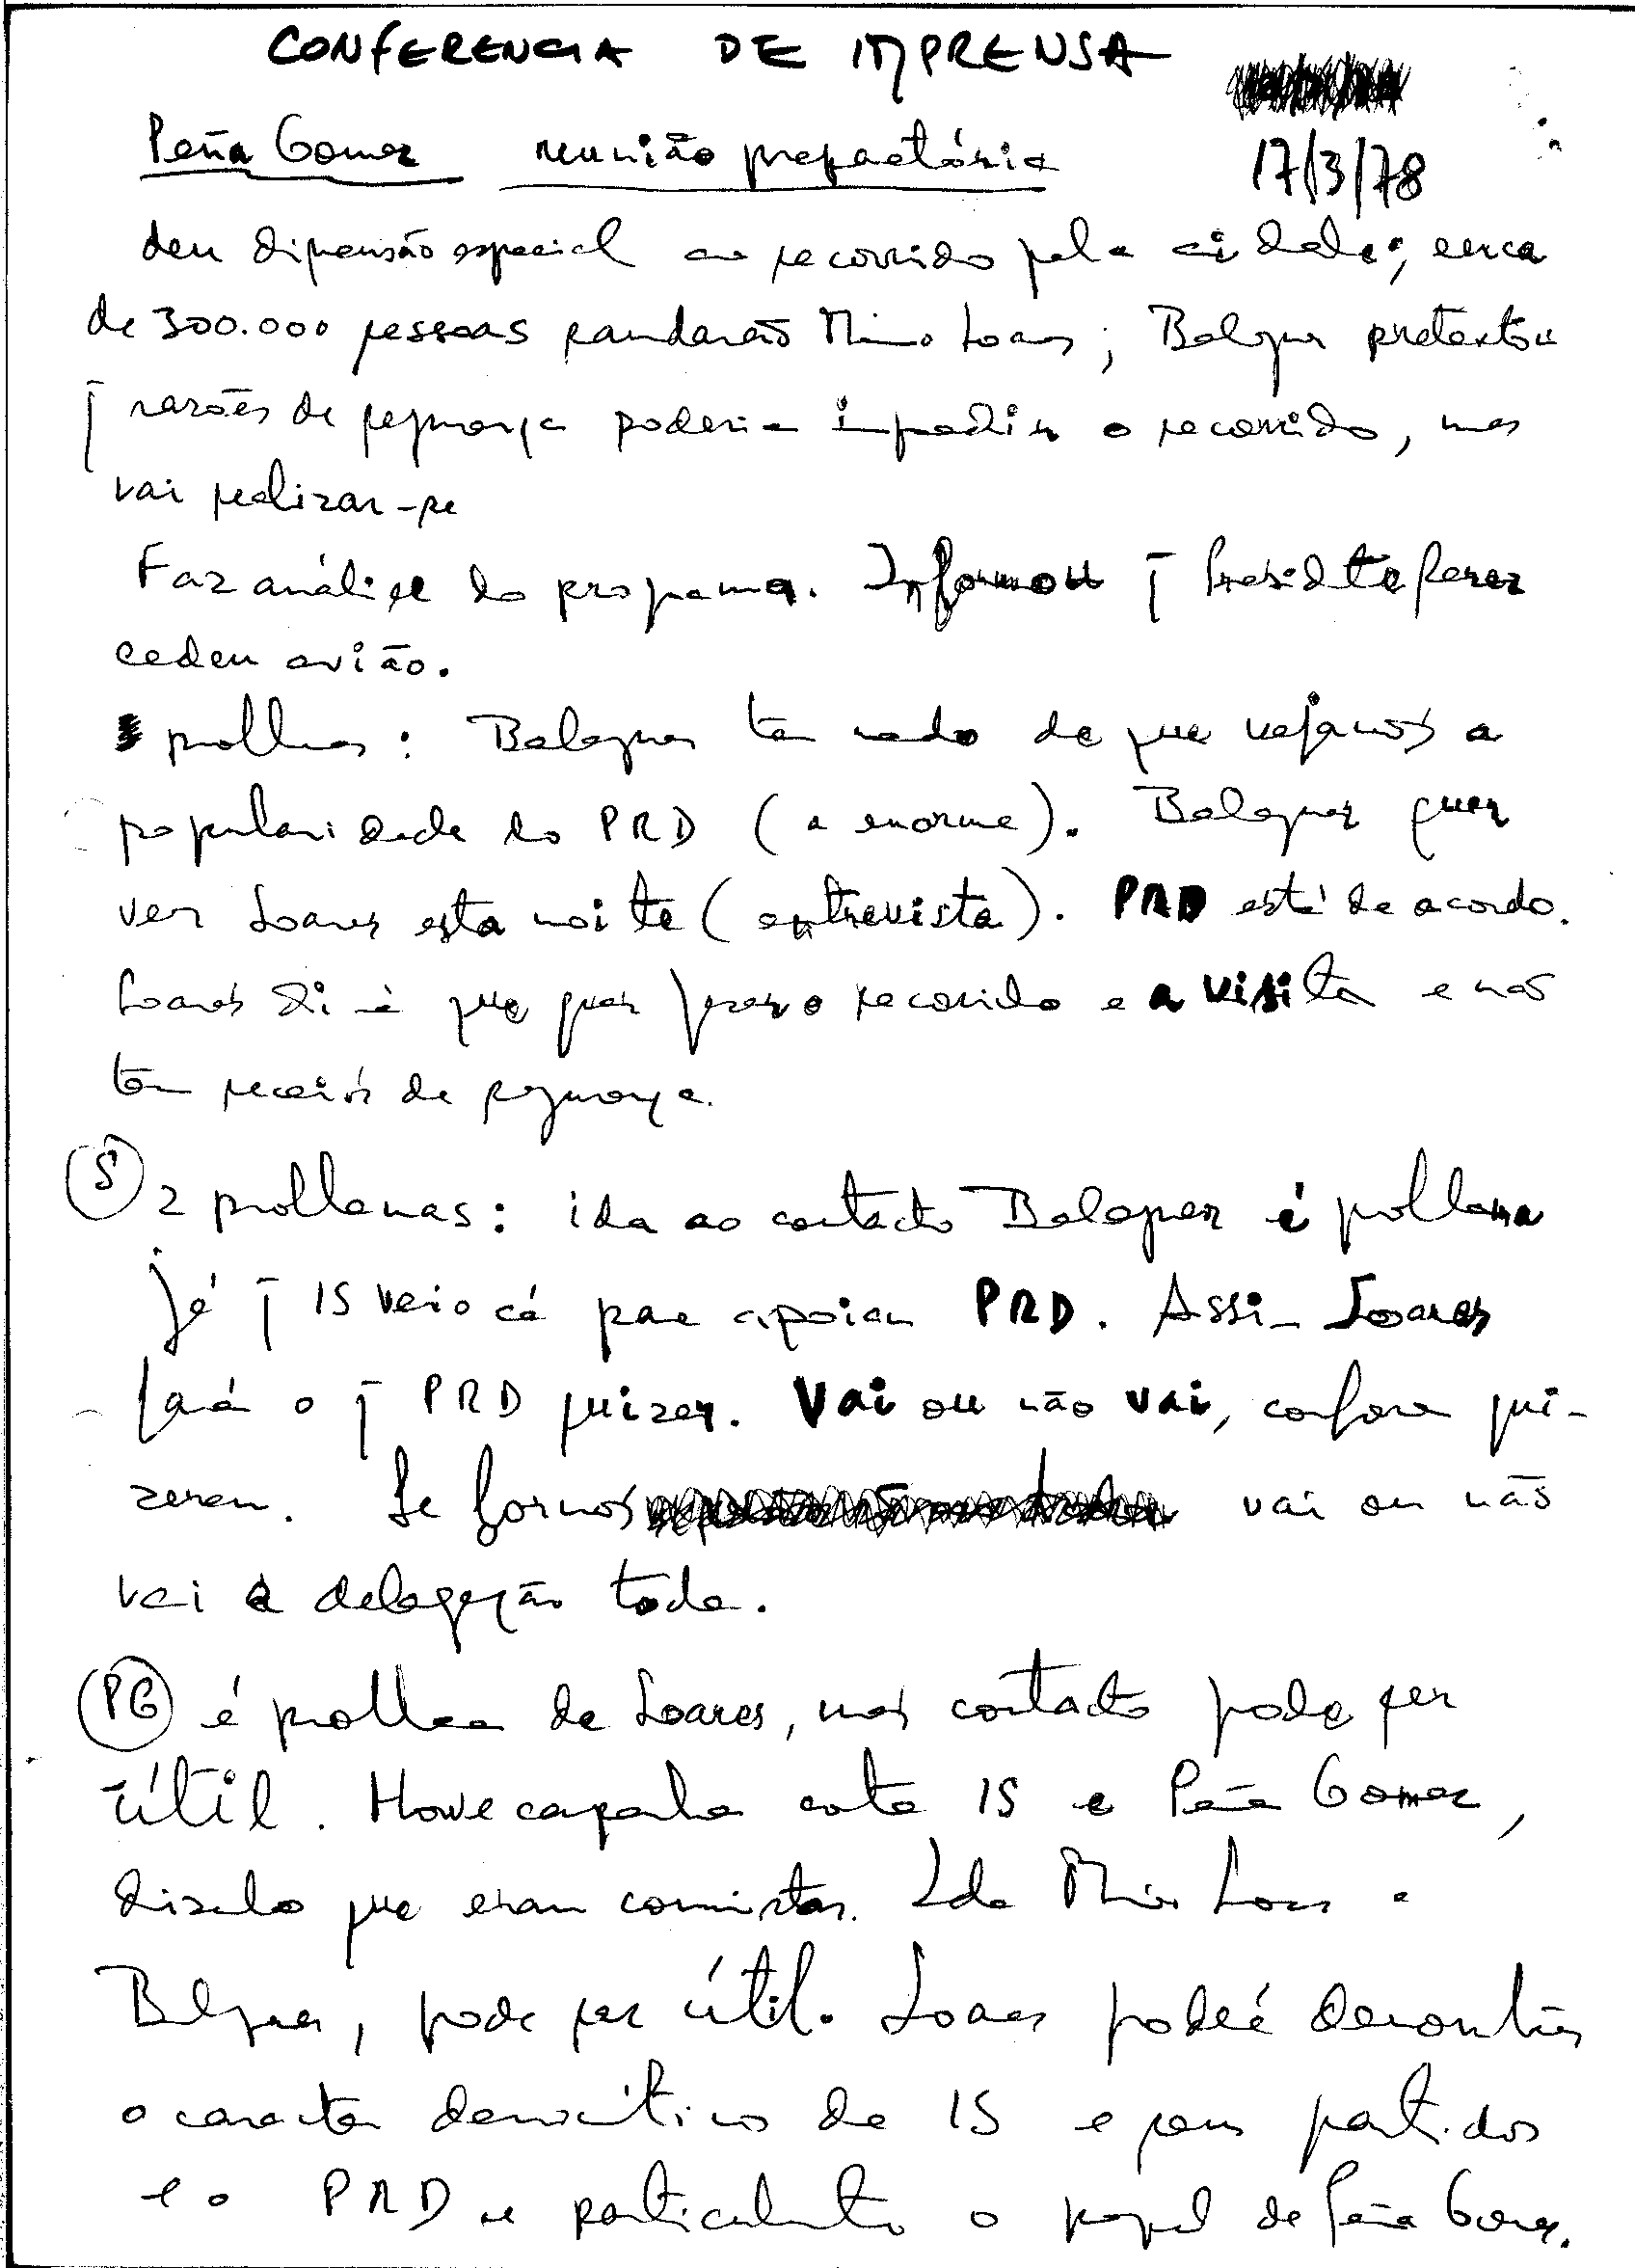 CONFERENCIA DE IMPRENSA
Peña Gomez reunião preparatória 17/3/78
deu dimensão especial ao recorrido pela cidade; cerca
de 300.000 pessoas saudarão Mário Soares; Balaguer pretextou
q̄ razões de segurança poderia impedir o recorrido, mas
vai realizar-se
Faz análise do programa. Informou q̄ Presidte Perez
cedeu avião.
problemas: Balaguer tem medo de que vejamos a
popularidade do PRD (a enorme). Balaguer quer
ver Soares esta noite (entrevista). PRD está de acordo.
Soares diz que quer fazer o recorrido e a visita e não
tem receios de segurança.
(S) 2 problemas: ida ao contacto Balaguer é problema
já q̄ IS veio cá para apoiar PRD. Assim Soares
fará o q̄ PRD quizer. Vai ou não vai, conforme qui-
zerem. Se formos vai ou não
vai a delegação toda.
(PG) é problema de Soares, mas contacto pode ser
útil. Houve campanha contra IS e Peña Gomez,
dizendo que eram comunistas. Ida Mário Soares a
Balaguer, pode ser útil. Soares poderá demonstrar
o caracter democrático da IS e seus partidos
e o PRD e particularmente o papel de Peña Gomez.